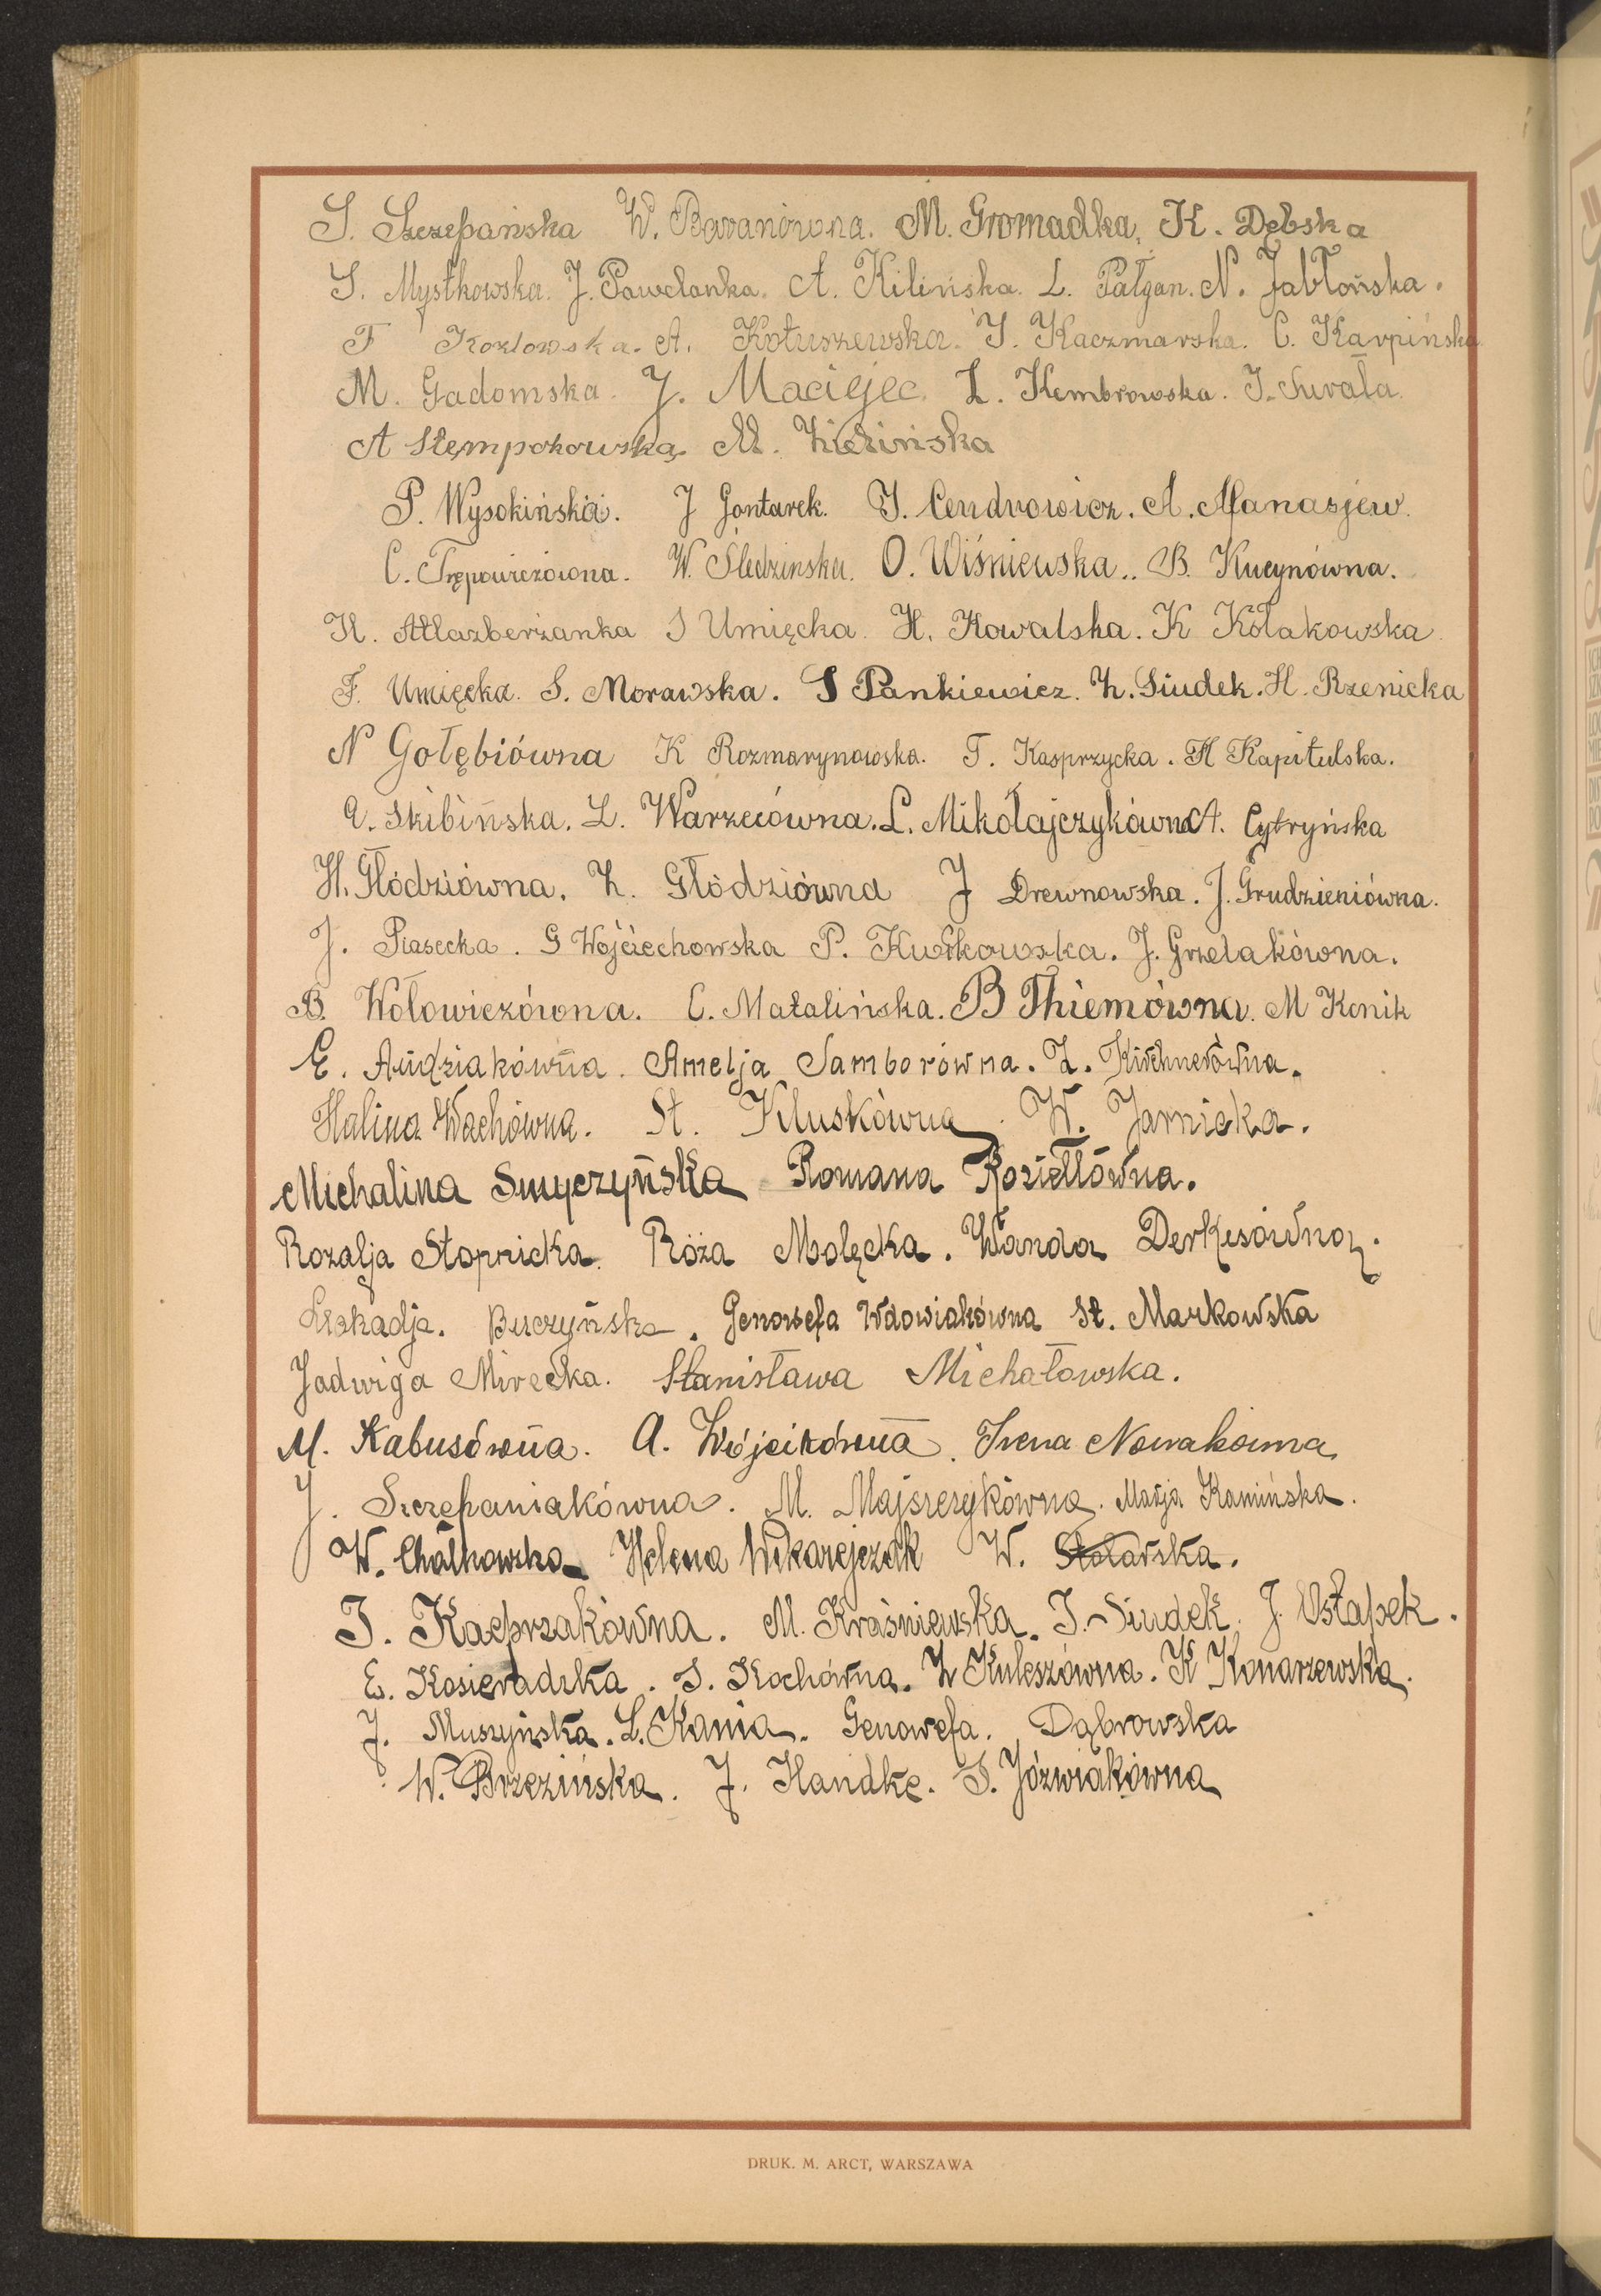 S. Szczepańska W. Baranówna. M. Gromadka, K. Dębska
S. Mystkowska. J. Pawelanka. A. Kilińska. L. Pałgan. N. Jabłońska.
F Kozlowska. A. Kotuszewska. I. Kaczmarska. C. Karpińska
M. Gadomska. J. Maciejec. L. Kembrowska. J. Suvała.
A Stempokowska, M. Zielińska
P. Wysokińska. J Gontarek. J. Cendrowicz. A. Afanasjew.
C. W. Śledzinska. O. Wiśniewska.. B. Kucynówna.
K. Atlazberżanka S Umięcka. H. Kowalska. K Kołakowska.
F. Umięcka. S. Morawska. S Pankiewicz. Z. Siudek. H. Rzenicka
N Gołębiówna K Rozmarynowska. T. Kasprzycka. H Kapitulska.
A. Skibińska. L. Warzecówna. L. Mikołajczykówna A. Cytryńska
H. Głódziówna. Z. Głódziówna J Drewnowska. J. Grudzieniówna.
J. Piasecka. G Wojciechowska P. Kwitkowska. J. Grzelakówna.
B. Wołowiczówna. C. Matalińska. B Thiemówna. M Konik
E. Andziakówna. Amelja Samborówna. Z. Kirchnerówna.
Halina Wachówna. St. Kluskówna. W. Jarnicka.
Michalina Smyczyńska Romana Koziełłówna.
Rozalja Stopnicka. Róża Molęcka. Wanda Derkesówna.
Leokadja. Buczyńska. Genowefa Wdowiakówna St. Markowska
Jadwiga Mirecka. Stanisława Michałowska.
M. Kabusówna. A. Wójcikówna. Irena Nowakówna
J. Szczepaniakówna. M. Majszczykówna. Marja Kamińska.
W. Chałkowska Helena W. Stolarska.
J. Kacprzakówna. M. Kraśniewska. J. Siudek. J. Ostapek.
E. Kosieradzka. S. Kochówna. Z Kuleszówna. K Konarzewska.
J. Muszyńska. L. Kania. Genowefa. Dąbrowska
W. Brzezińska. J. Handke. S. Jóźwiakówna
DRUK. M. ARCT, WARSZAWA